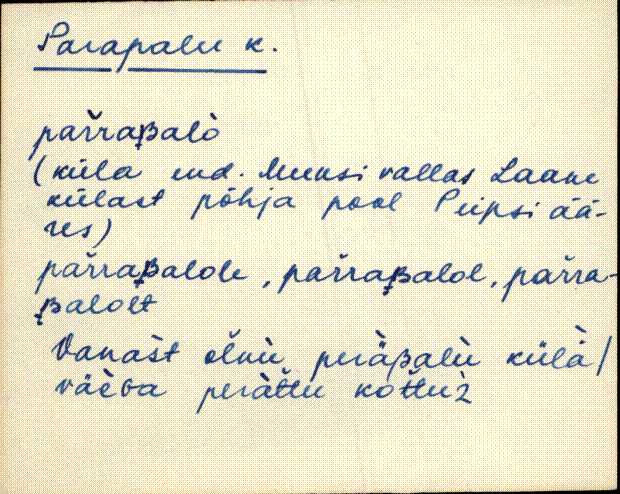 Parapalu k.
pär̆raʙalò
(küla end. Meeksi vallas Laane
külast põhja pool Peipsi ää-
res)
par̆raʙalole, par̆raʙalol, par̆ra-
ʙalolt
Vanàst ol̆nù peräʙalù külà /
väèGa peràt̆tu kot̆tùz